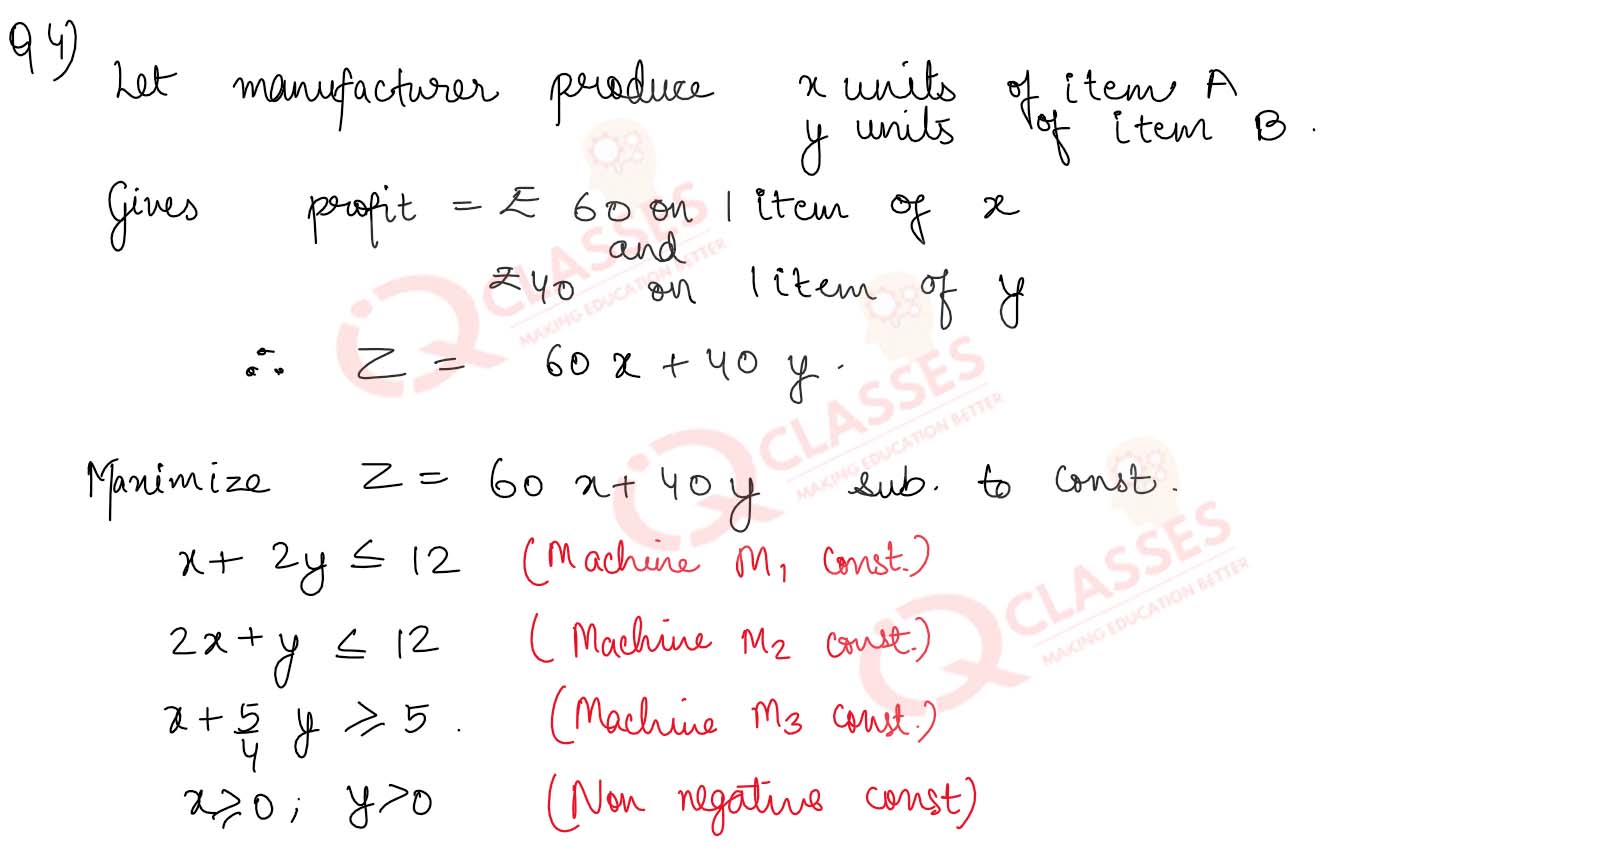 Q4)
Let manufacturer produce x units of item A
y units of item B.
Gives profit = ₹ 60 on 1 item of x
and
₹40 on 1 item of y
∴ Z = 60x + 40y.
Maximize Z = 60x + 40y sub. to const.
x + 2y ≤ 12 (Machine M1 const.)
2x + y ≤ 12 (Machine M2 const.)
x + 5/4 y ≥ 5. (Machine M3 const.)
x ≥ 0; y > 0 (Non negative const)
IQ CLASSES
MAKING EDUCATION BETTER
IQ CLASSES
MAKING EDUCATION BETTER
IQ CLASSES
MAKING EDUCATION BETTER